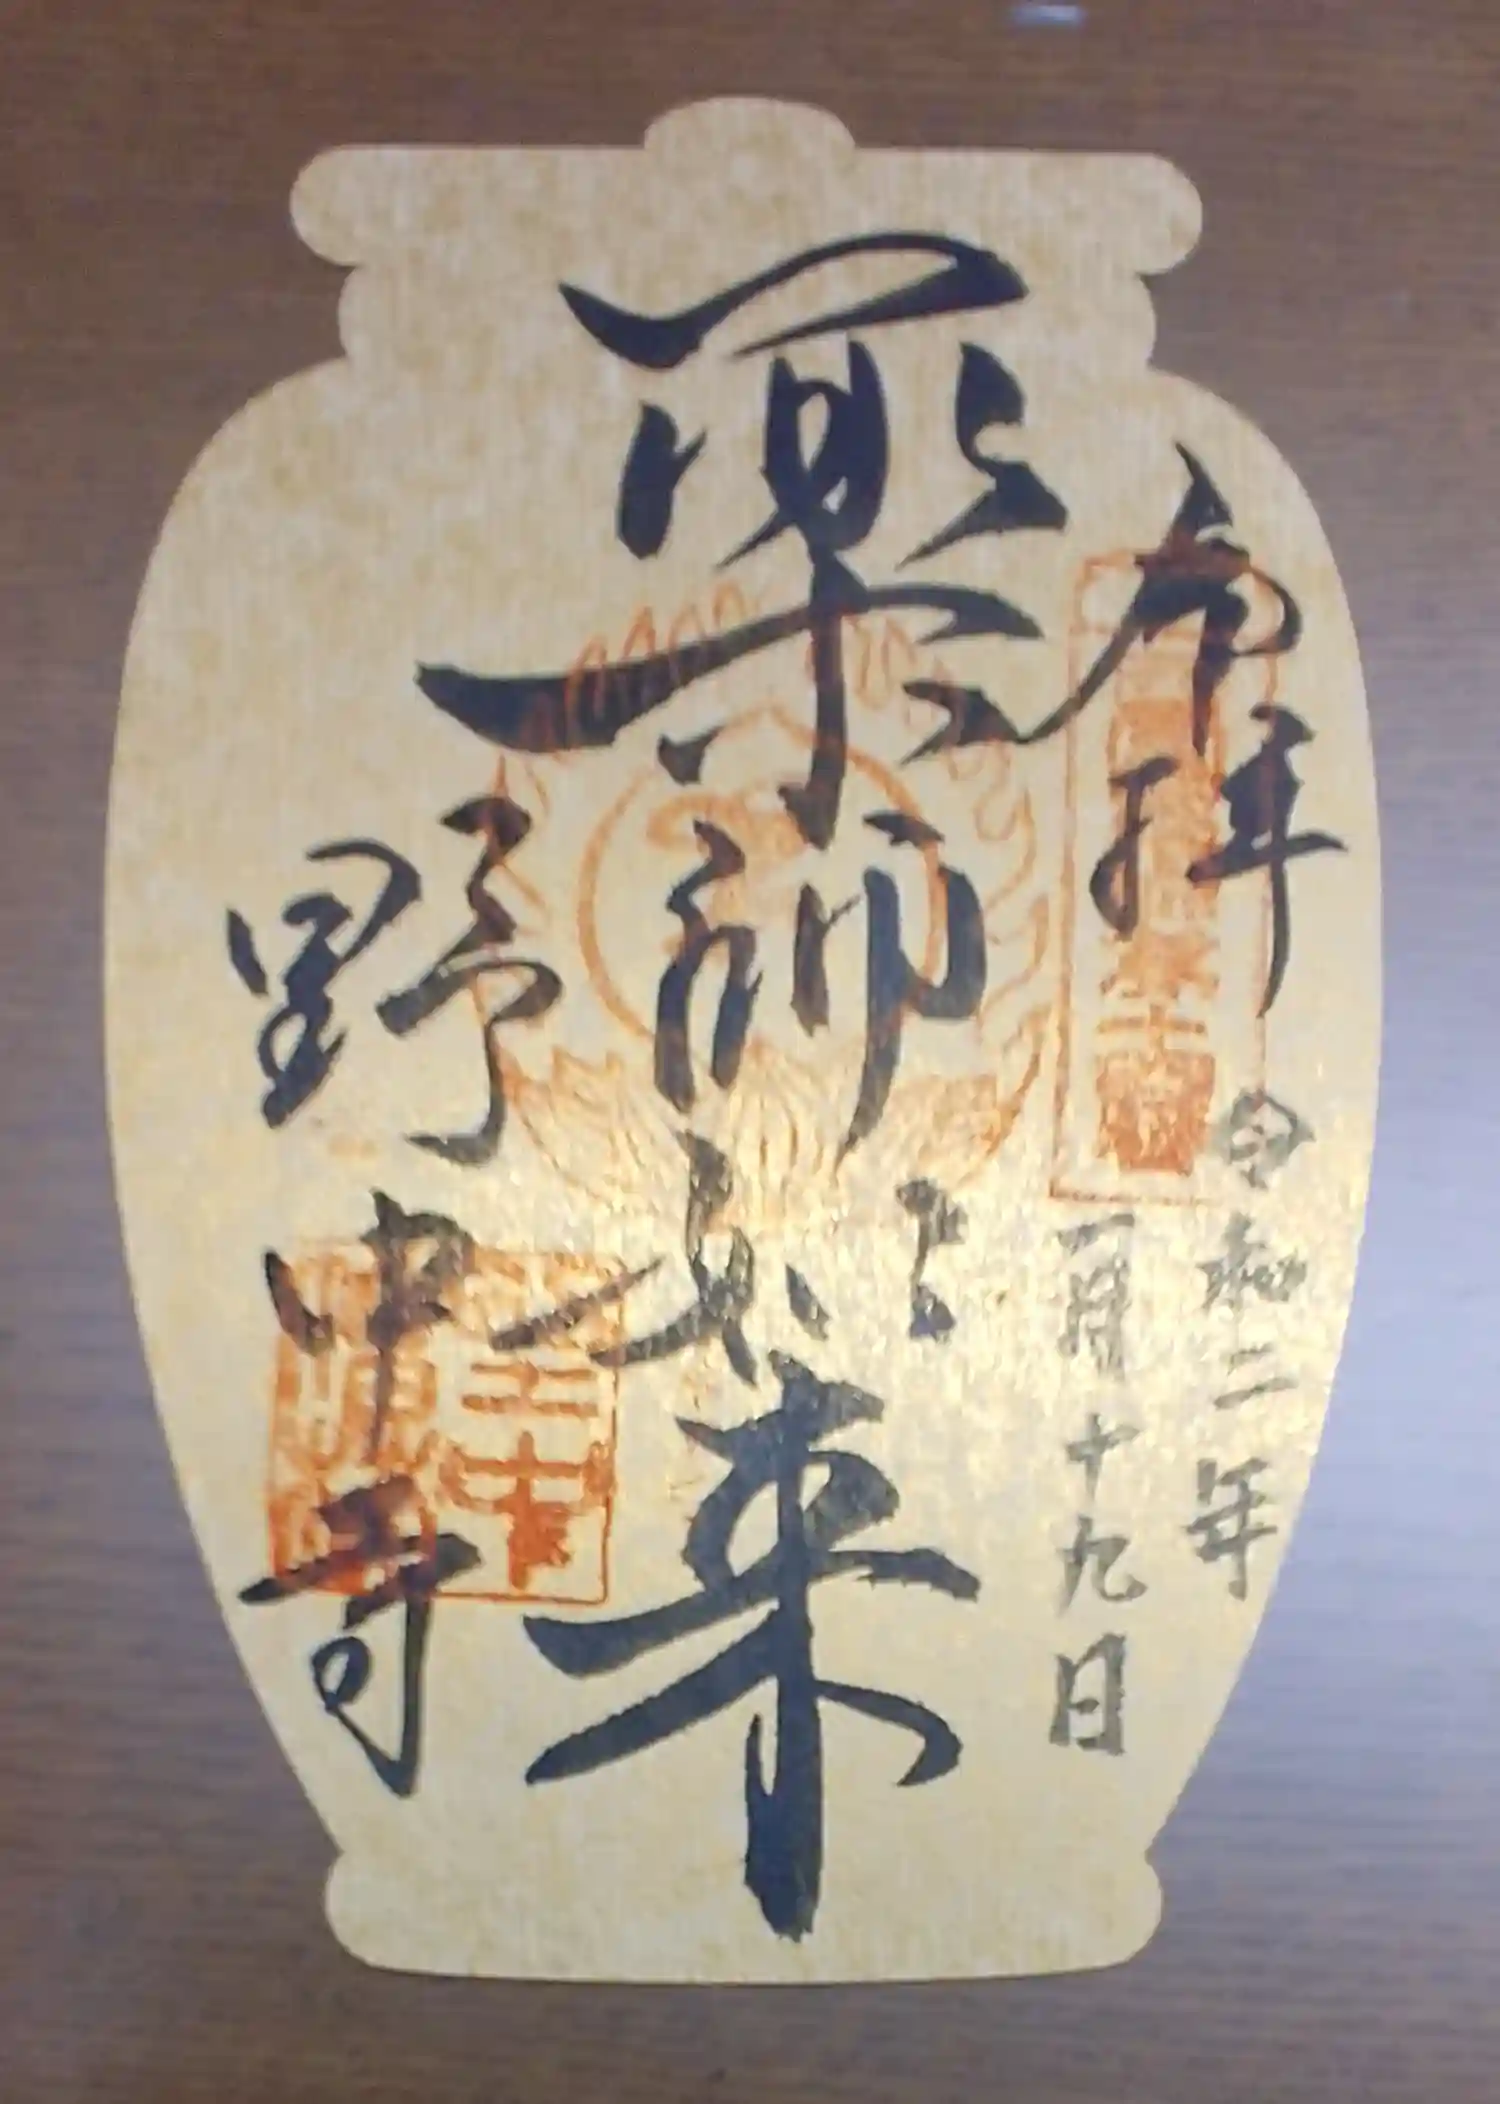 奉拝
令和二年
一月十九日
薬師如来
野中寺